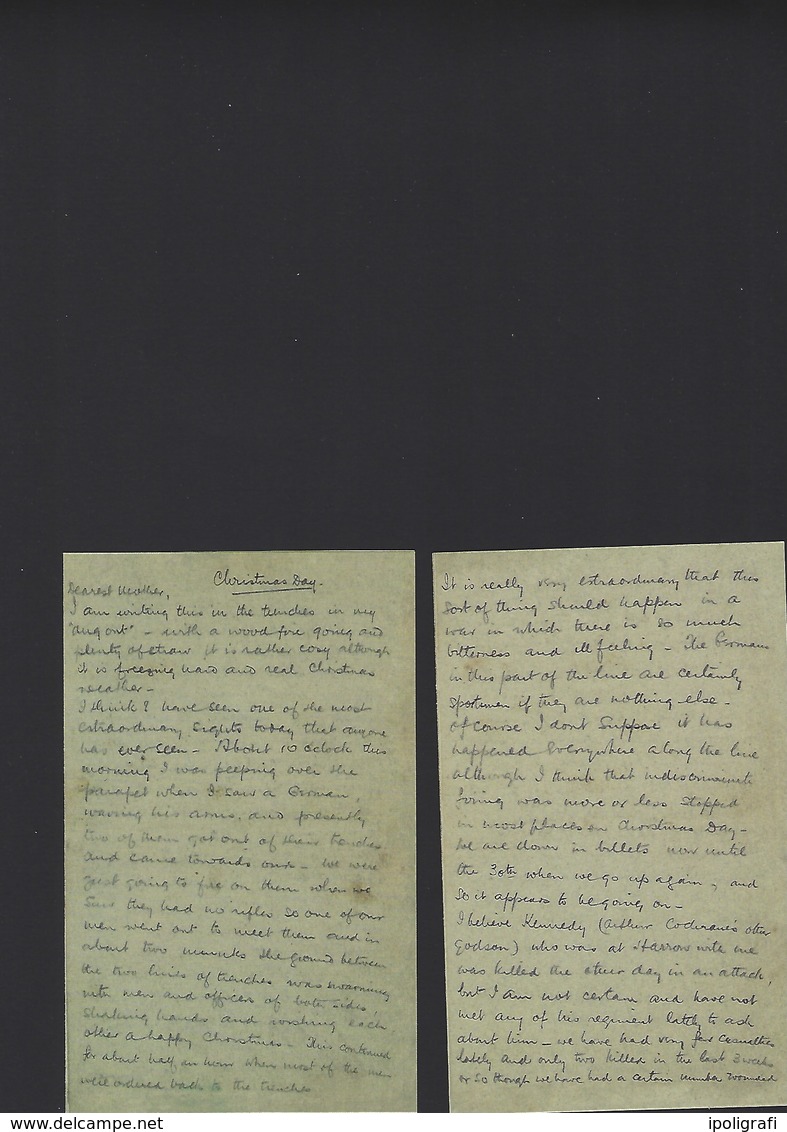 Christmas Day.
Dearest Mother,
I am writing this in the trenches in my
"dug out" - with a wood fire going and
plenty of straw it is rather cosy although
it is freezing hard and real Christmas
weather -
I think I have seen one of the most
extraordinary sights today that anyone
has ever seen - About 10 oclock this
morning I was peeping over the
parapet when I saw a German,
waving his arms, and presently
two of them got out of their trenches
and came towards ours - We were
just going to fire on them when we
saw they had no rifles so one of our
men went out to meet them and in
about two minutes the ground between
the two lines of trenches was swarming
with men and officers of both sides,
shaking hands and wishing each
other a happy Christmas - This continued
for about half an hour when most of the men
were ordered back to the trenches
It is really very extraordinary that this
sort of thing should happen in a
war in which there is so much
bitterness and ill feeling - The Germans
in this part of the line are certainly
sportsmen if they are nothing else -
Of course I dont suppose it has
happened everywhere along the line
although I think that indiscriminate
firing was more or less stopped
in most places on Christmas Day -
We are down in billets now until
the 30th when we go up again, and
so it appears to be going on -
I believe Kennedy (Arthur Cochrane's other
godson) who was at Harrow with me
was killed the other day in an attack,
but I am not certain and have not
met any of his regiment lately to ask
about him - we have had very few casualties
lately and only two killed in the last 3 weeks
or so though we have had a certain number wounded
delcampe.net
ipoligrafi